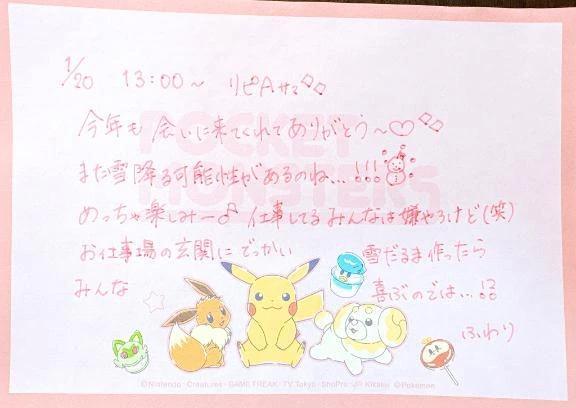 1/20 13:00〜 リピAサマ
今年も 会いに来てくれてありがとう〜♡
POCKET
また雪降る可能性があるのね...!!!
MONSTERS
めっちゃ楽しみー♪ 仕事してるみんなは嫌やろけど(笑)
お仕事場の玄関に でっかい 雪だるま作ったら
みんな 喜ぶのでは...!?
ふわり
©Nintendo・Creatures・GAME FREAK・TV Tokyo・ShoPro・JR Kikaku ©Pokémon